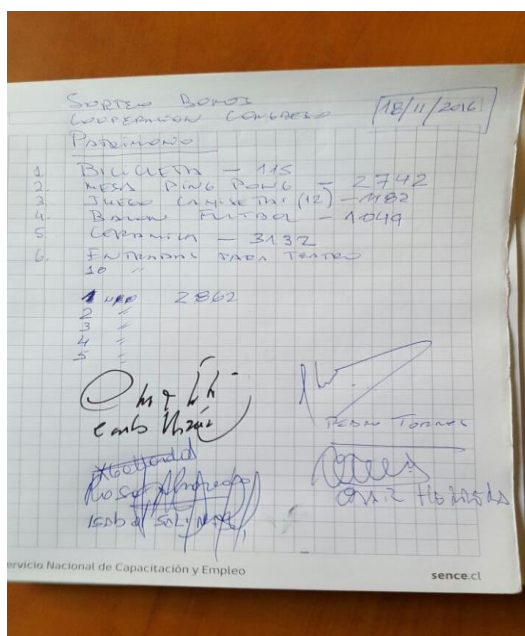 SORTEO BONOS
COOPERACION CONGRESO
18/11/2016
PATRIMONIO
1. BICICLETA – 115
2. MESA PING PONG – 2742
3. JUEGO CAMISETAS (12) – 1182
4. BALON FUTBOL – 1049
5. CERAMICA – 3132
6. ENTRADAS PARA TEATRO
10 "
1 UNO 2862
2 "
3 "
4 "
5 "
Carlos
PEDRO TORRES
Rosa
OMAR HERRERA
Isabel
Servicio Nacional de Capacitación y Empleo
sence.cl